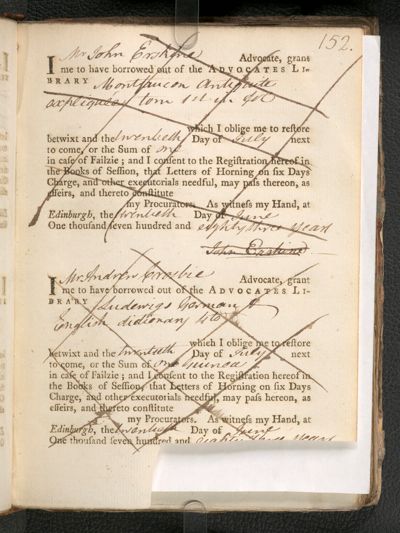 152.
I Mr John Erskine Advocate, grant
me to have borrowed out of the ADVOCATES LI-
BRARY Montfaucon Antiquite
expliquée tom 1st in fol
which I oblige me to restore
betwixt and the twentieth Day of July next
to come, or the Sum of one
in case of Failzie; and I consent to the Registration hereof in
the Books of Session, that Letters of Horning on six Days
Charge, and other executorials needful, may pass thereon, as
effeirs, and thereto constitute
my Procurators. As witness my Hand, at
Edinburgh, the twentieth Day of June
One thousand seven hundred and eighty three years
John Erskine
I Mr Andrew Crosbie Advocate, grant
me to have borrowed out of the ADVOCATES LI-
BRARY Ludewigs German &
English dictionary 4to
which I oblige me to restore
betwixt and the twentieth Day of July next
to come, or the Sum of one Guinea
in case of Failzie; and I consent to the Registration hereof in
the Books of Session, that Letters of Horning on six Days
Charge, and other executorials needful, may pass hereon, as
effeirs, and thereto constitute
my Procurators. As witness my Hand, at
Edinburgh, the twentieth Day of June
One thousand seven hundred and eighty three years